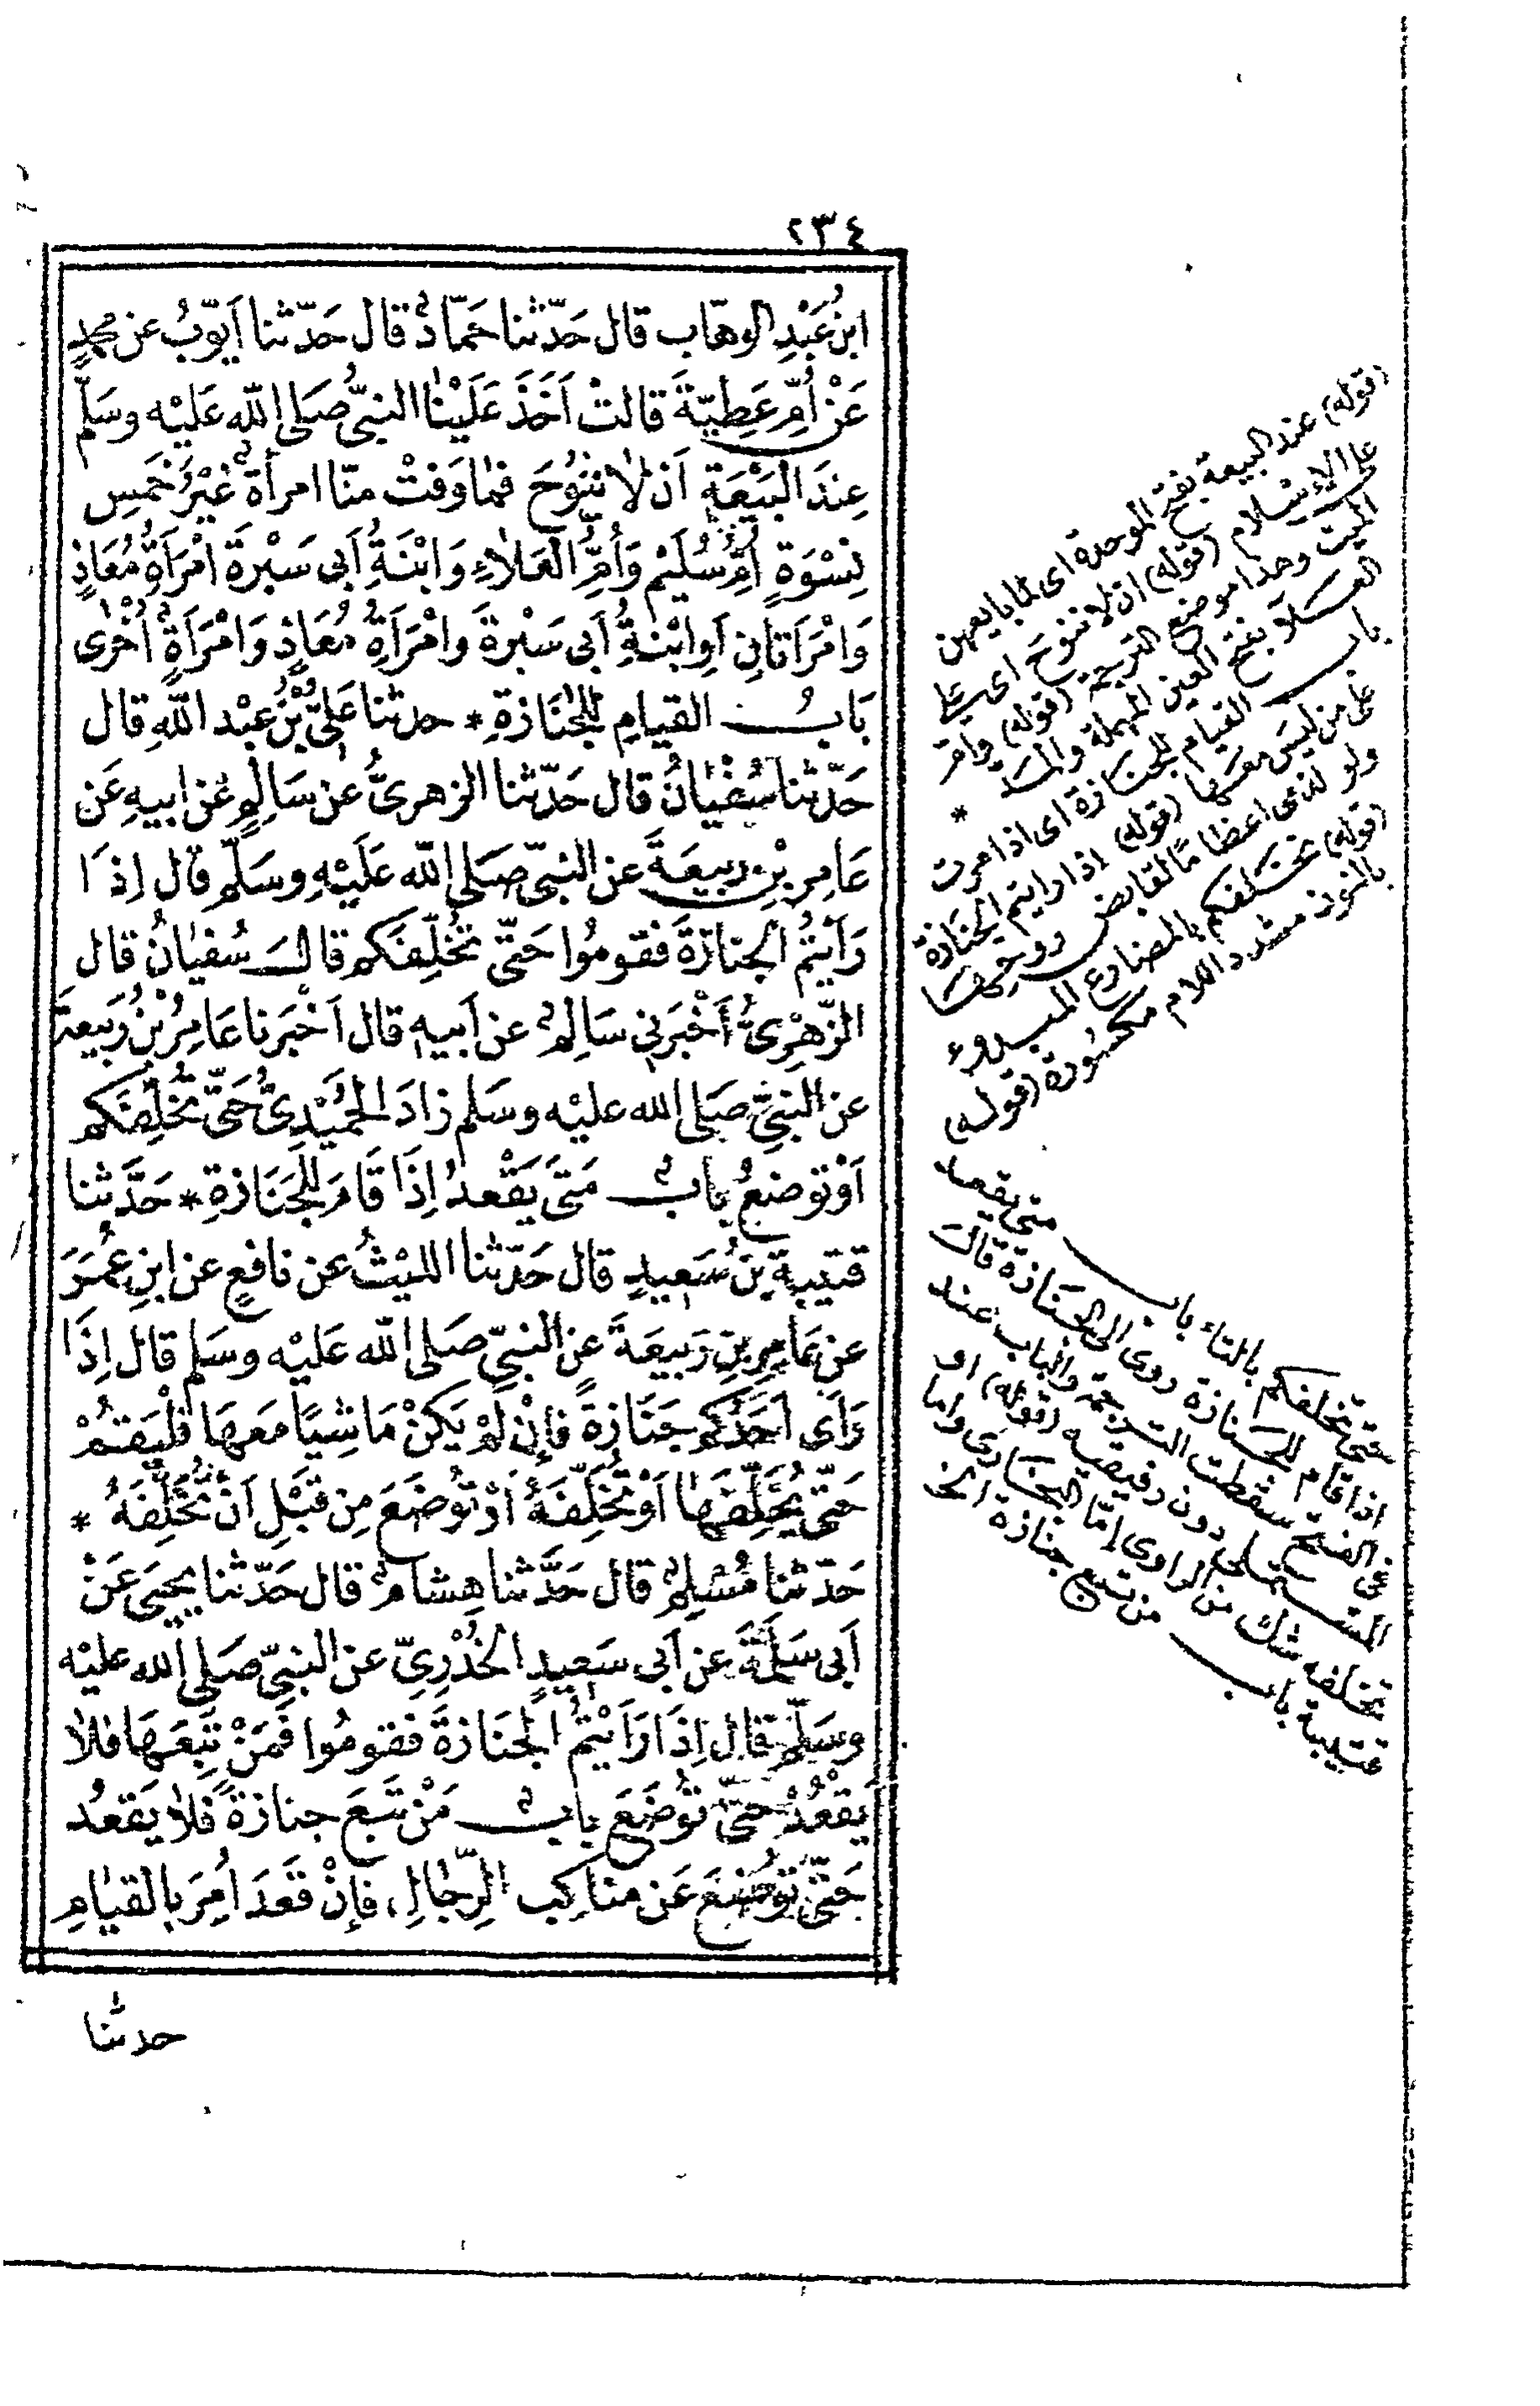 ٢٣٤
ابنُ عَبْدِ الوهّاب قال حَدّثنا حَمّادٌ قال حَدّثنا أيّوبُ عن محمدٍ
عَنْ أُمِّ عَطِيّةَ قالتْ أَخَذَ عَلَيْنا النبيُّ صَلى الله عَلَيْه وسَلّم
عِنْدَ البَيْعَةِ أنْ لا نَنُوحَ فما وَفتْ منّا امرأةٌ غَيْرُ خَمسِ
نِسْوَةٍ أمِّ سُلَيْم وَأُمِّ العَلاءِ وَابْنَةِ أبى سَبْرةَ امْرَأةِ مُعَاذٍ
وَامْرَأتانِ أوِ ابْنةِ أبى سَبْرةَ وامْرَأةِ مُعَاذٍ وَامْرَأةٍ أُخْرٰى
بَابُ القيامِ لِلْجَنَازةِ * حدثنا عَلِيُّ بْنُ عَبْد اللهِ قال
حَدّثنا سُفْيَانُ قال حَدّثنا الزهرىُّ عن سَالِمٍ عَن ابيهِ عَن
عَامِر بْنِ رَبيعَةَ عن النبىّ صَلى الله عَلَيْهِ وسَلّم قال إذَا
رَأيتُمُ الجنازةَ فقومُوا حَتّى تُخَلِّفَكم قال سُفيانُ قال
الزّهْرِىُّ أخْبَرَنى سَالِمٌ عن أبيهِ قال أخْبَرنا عَامِرُ بْنُ رَبيعةَ
عن النبيّ صَلى الله عليْه وسَلم زادَ الحُمَيْدِىُّ حَتّى تُخَلِّفَكم
أوْ توضعَ بابٌ مَتَى يَقْعدُ إذَا قَامَ لِلْجَنَازةِ * حَدَّثنا
قتيبة بنُ سَعِيدٍ قال حَدّثنا الليْثُ عن نافعٍ عن ابنِ عُمَرَ
عن عَامِرِ بنِ رَبيعَةَ عن النبيِّ صَلى الله عَلَيْه وسَلم قال إذَا
رَأى أحَدُكم جَنَازةً فإنْ لمْ يَكنْ مَاشِيًا مَعَهَا فَلْيَقُمْ
حَتّى يُخَلِّفَهَا أوْ تُخَلِّفَهُ أوْ تُوضَعَ مِن قبْلِ أنْ تُخَلِّفَهُ *
حَدّثنا مُسْلِمٌ قال حَدَّثنا هِشامٌ قال حَدّثنا يَحْيَى عَنْ
أبى سَلَمَةَ عن أبى سَعيدٍ الخُدْرِىِّ عن النبىّ صَلى الله عليْه
وسَلّم قال إذَا رَأيْتُمُ الجَنَازةَ فقومُوا فَمَنْ تَبِعَهَا فلا
يَقْعُدْ حَتّى تُوضَعَ بابٌ مَنْ تَبعَ جنازةً فلا يَقعُد
حَتّى توضَعَ عَن مناكِب الرِّجَالِ فإنْ قَعَدَ أُمِرَ بِالقيَامِ
حدثنا
(قوله) عند البيعة بفتح الموحدة اى لما بايعهن
على الاسلام (قوله) ان لا ننوح اى على
الميت وهذا موضع الترجمة (قوله) وامر
العلاء بفتح العين المهملة والمد *
باب القيام للجنازة اى اذا مرت
على من ليس معها (قوله) اذا رايتم الجنازة
ولو لذمى اعظاما لقابض روحها
(قوله) تخلفكم
بالنون مشدد اللام مكسورة (قوله)
حتى تخلفكم بالتاء باب متى يقعد
اذا قام للجنازة روى الى الجنازة قال
فى الفتح سقطت الترجمة والباب عند
المستملى دون رفيقيه (قوله) او
تخلفه شك من الراوى إمّا البخارى وإما
قتيبة باب من تبع جنازة الخ